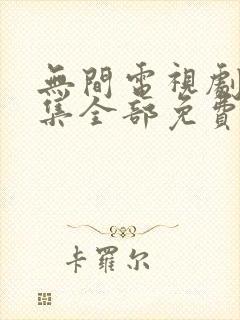 無間電視劇
集全部免費
卡羅尔